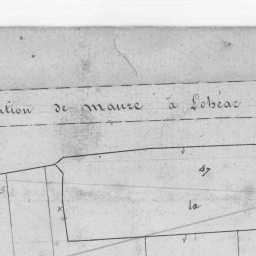 ation de Maure à Lohéac
47
la